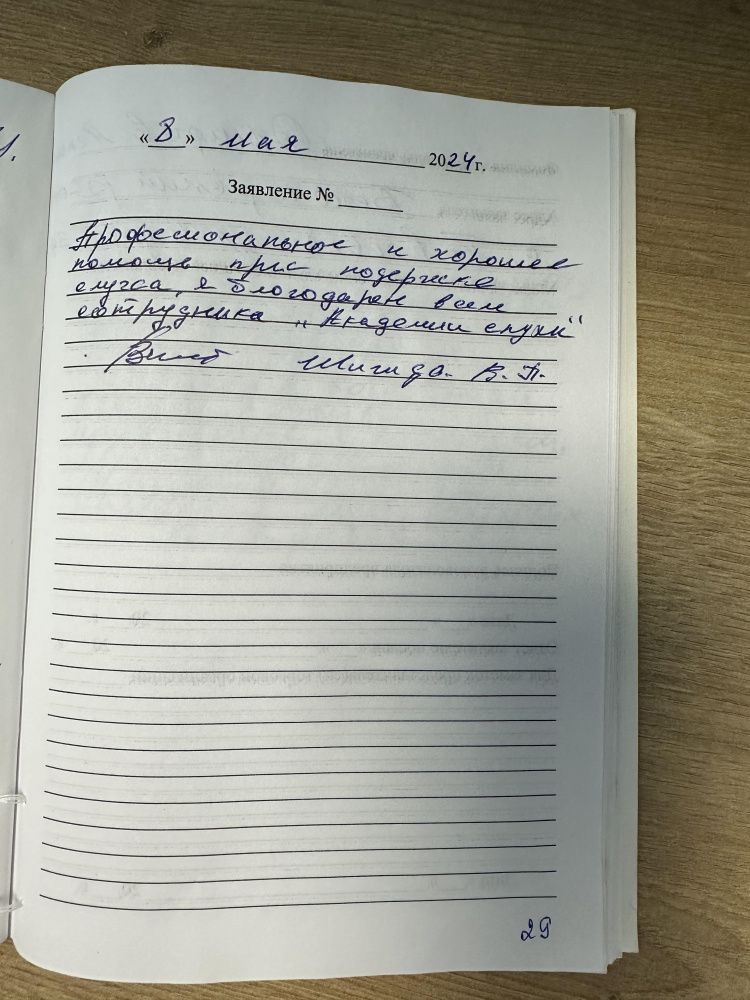 «8» мая 2024 г.
Заявление №
Професиональное и хорошее
помоще при подержке
слуха, я благодарен всем
сотрудника „Академии слуха"
Шигида В.П.
29